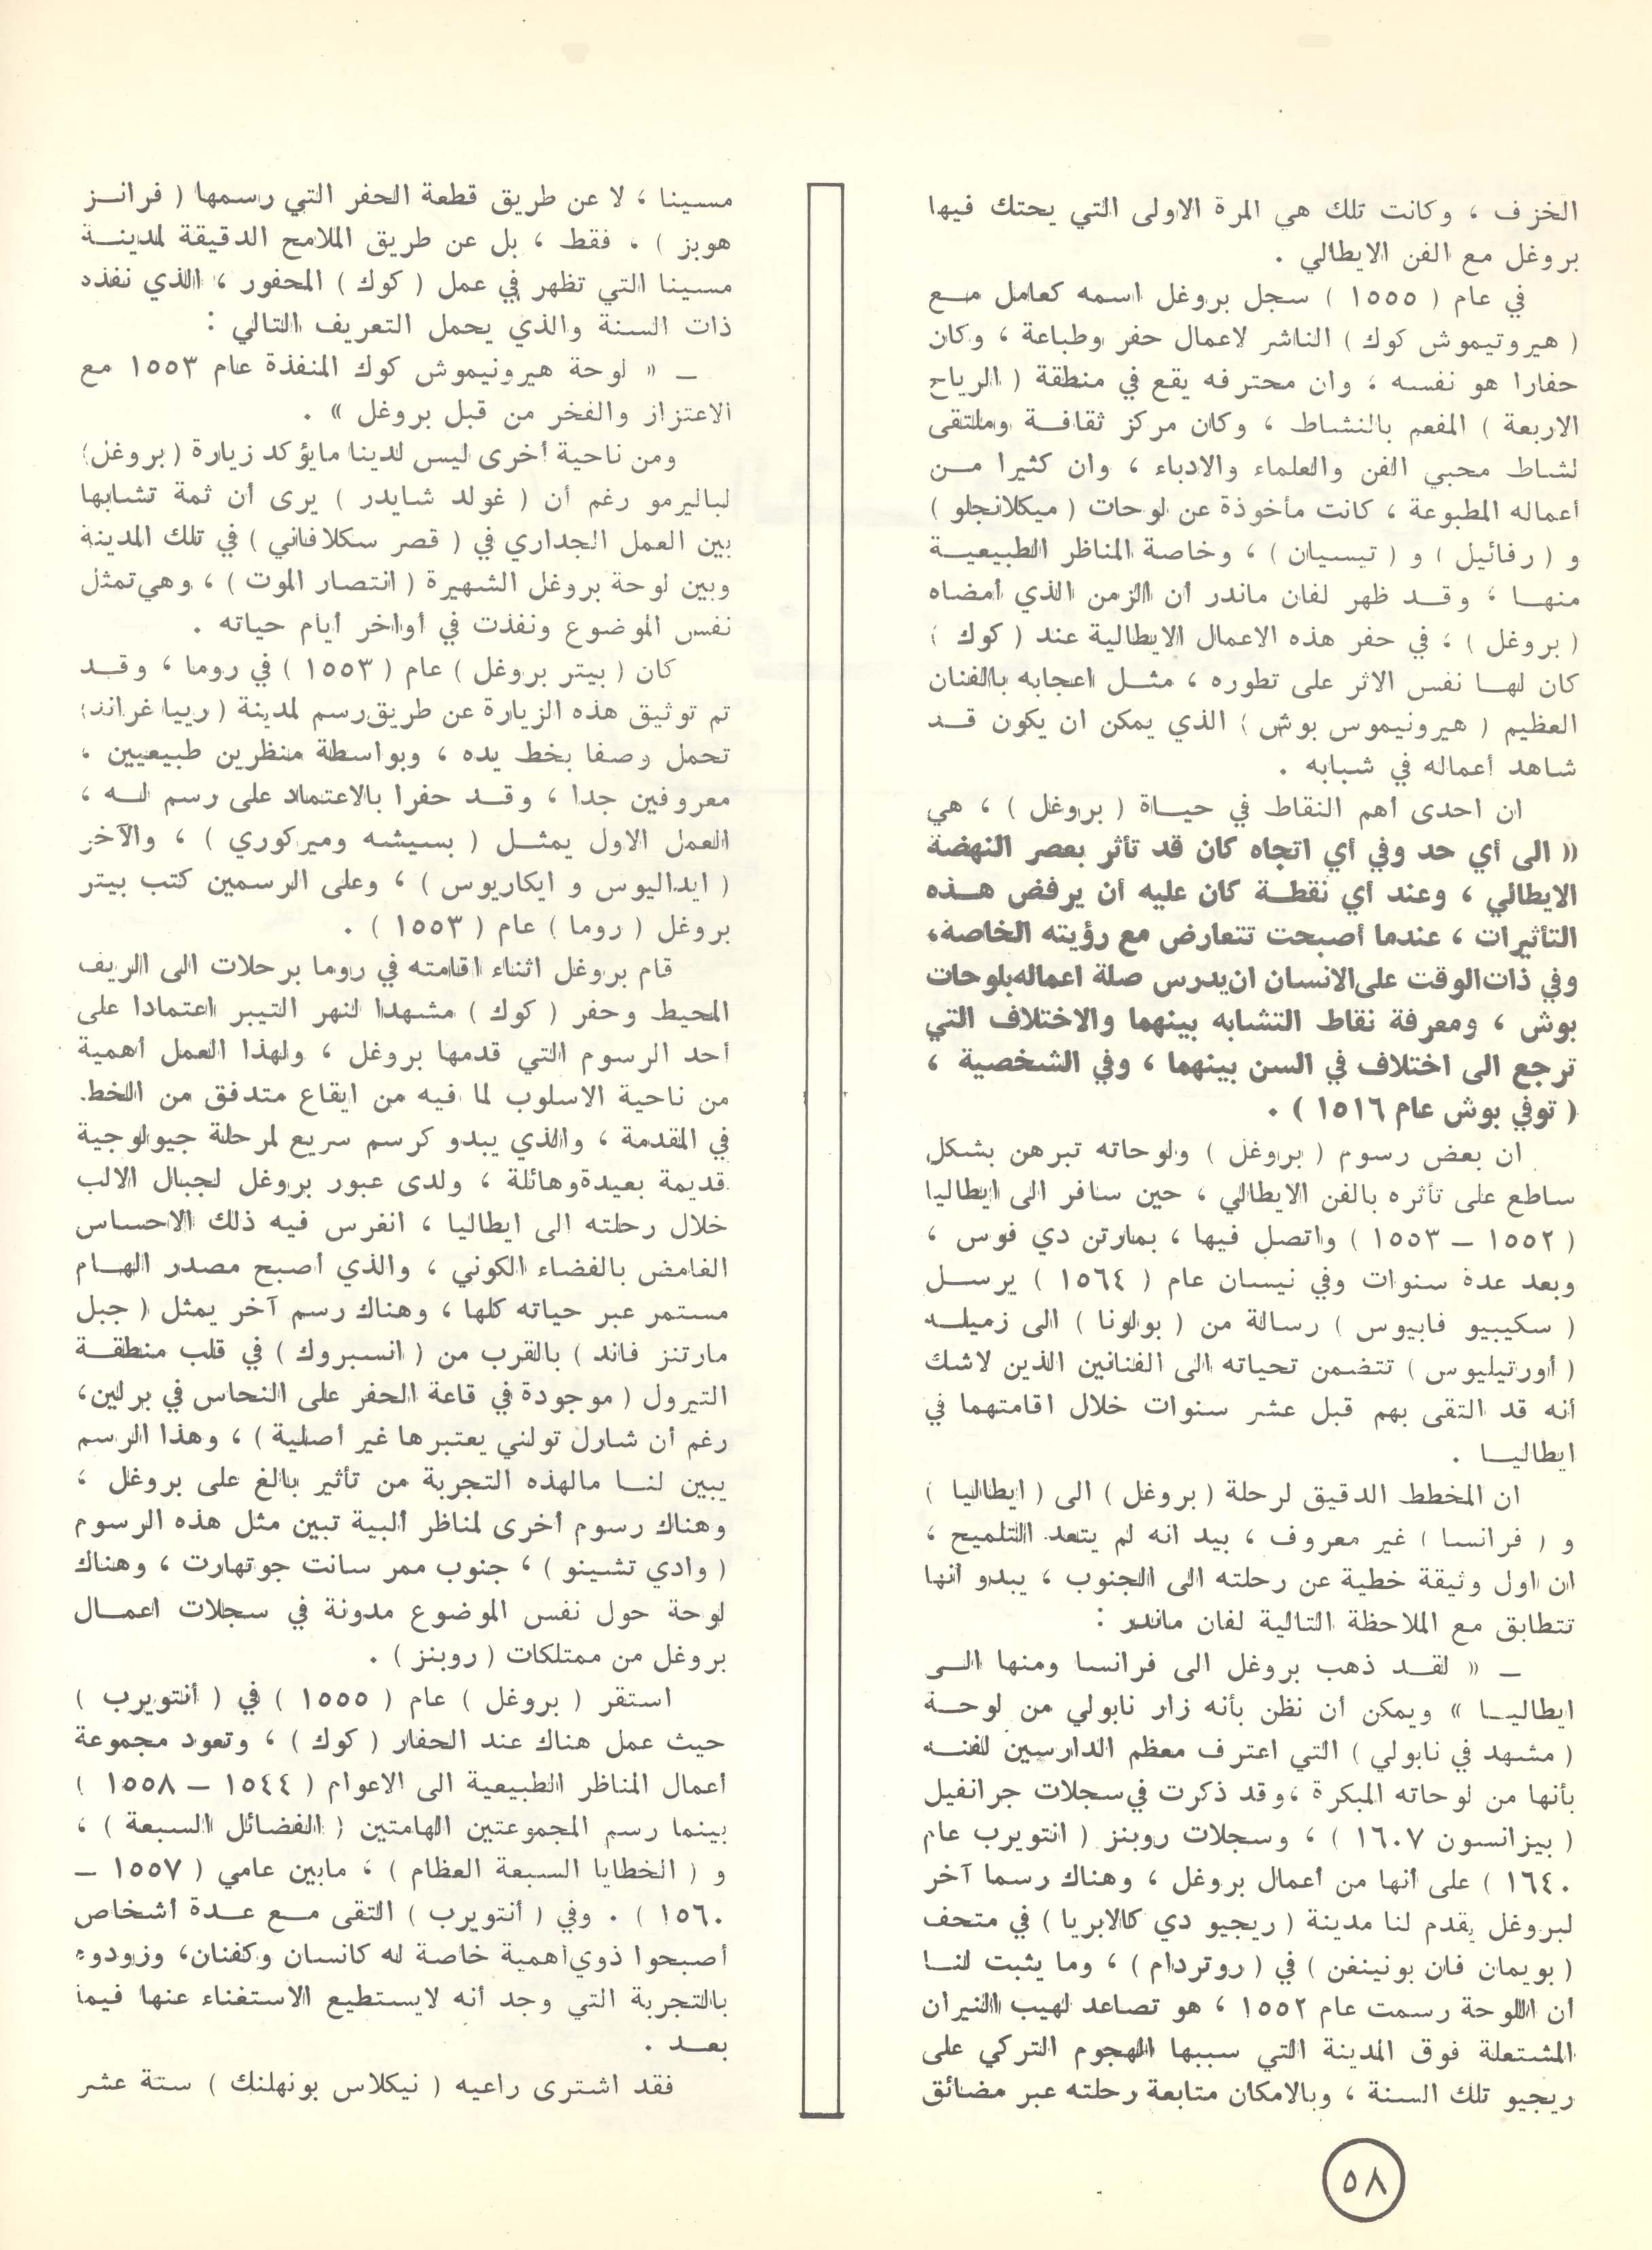 الخزف ، وكانت تلك هي المرة الاولى التي يحتك فيها
بروغل مع الفن الايطالي .
في عام ( ١٥٥٥ ) سجل بروغل اسمه كعامل مـع
( هيروتيموش كوك ) الناشر لاعمال حفر وطباعة ، وكان
حفارا هو نفسه ، وان محترفه يقع في منطقة ( الرياح
الاربعة ) المفعم بالنشاط ، وكان مركز ثقافـة وملتقى
لشاط محبي الفن والعلماء والادباء ، وان كثيرا مـن
أعماله المطبوعة ، كانت مأخوذة عن لوحات ( ميكلانجلو )
و ( رفائيل ) و ( تيسيان ) ، وخاصة المناظر الطبيعيـة
منهـا ، وقـد ظهر لفان ماندر أن الزمن الذي أمضاه
( بروغل ) ، في حفر هذه الاعمال الايطالية عند ( كوك )
كان لهـا نفس الاثر على تطوره ، مثـل اعجابه بالفنان
العظيم ( هيرونيموس بوش ) الذي يمكن ان يكون قـد
شاهد أعماله في شبابه .
ان احدى أهم النقاط في حيـاة ( بروغل ) ، هي
« الى أي حد وفي أي اتجاه كان قد تأثر بعصر النهضة
الايطالي ، وعند أي نقطـة كان عليه أن يرفض هـذه
التأثيرات ، عندما أصبحت تتعارض مع رؤيته الخاصة،
وفي ذات الوقت على الانسان ان يدرس صلة اعماله بلوحات
بوش ، ومعرفة نقاط التشابه بينهما والاختلاف التي
ترجع الى اختلاف في السن بينهما ، وفي الشخصية ،
( توفي بوش عام ١٥١٦ ) .
ان بعض رسوم ( بروغل ) ولوحاته تبرهن بشكل
ساطع على تأثره بالفن الايطالي ، حين سافر الى ايطاليا
( ١٥٥٢ – ١٥٥٣ ) واتصل فيها ، بمارتن دي فوس ،
وبعد عدة سنوات وفي نيسان عام ( ١٥٦٤ ) يرسـل
( سكيبيو فابيوس ) رسالة من ( بولونا ) الى زميلـه
( أورتيليوس ) تتضمن تحياته الى الفنانين الذين لاشك
أنه قد التقى بهم قبل عشر سنوات خلال اقامتهما في
ايطاليـا .
ان المخطط الدقيق لرحلة ( بروغل ) الى ( ايطاليا )
و ( فرانسا ) غير معروف ، بيد انه لم يتعد التلميح ،
ان اول وثيقة خطية عن رحلته الى الجنوب ، يبدو أنها
تتطابق مع الملاحظة التالية لفان ماندر :
– « لقـد ذهب بروغل الى فرانسا ومنها الـى
ايطاليـا » ويمكن أن نظن بأنه زار نابولي من لوحـة
( مشهد في نابولي ) التي اعترف معظم الدارسين لفنـه
بأنها من لوحاته المبكرة ، وقد ذكرت في سجلات جرانفيل
( بيزانسون ١٦٠٧ ) ، وسجلات روبنز ( انتويرب عام
١٦٤٠ ) على أنها من أعمال بروغل ، وهناك رسما آخر
لبروغل يقدم لنا مدينة ( ريجيو دي كالابريا ) في متحف
( بويمان فان بونينفن ) في ( روتردام ) ، وما يثبت لنـا
أن اللوحة رسمت عام ١٥٥٢ ، هو تصاعد لهيب النيران
المشتعلة فوق المدينة التي سببها الهجوم التركي على
ريجيو تلك السنة ، وبالامكان متابعة رحلته عبر مضائق
مسينا ، لا عن طريق قطعة الحفر التي رسمها ( فرانـز
هوبز ) ، فقط ، بل عن طريق الملامح الدقيقة لمدينـة
مسينا التي تظهر في عمل ( كوك ) المحفور ، الذي نفذه
ذات السنة والذي يحمل التعريف التالي :
– « لوحة هيرونيموش كوك المنفذة عام ١٥٥٣ مع
الاعتزاز والفخر من قبل بروغل » .
ومن ناحية أخرى ليس لدينا مايؤكد زيارة ( بروغل )
لباليرمو رغم أن ( غولد شايدر ) يرى أن ثمة تشابها
بين العمل الجداري في ( قصر سكلافاني ) في تلك المدينة
وبين لوحة بروغل الشهيرة ( انتصار الموت ) ، وهي تمثل
نفس الموضوع ونفذت في أواخر أيام حياته .
كان ( بيتر بروغل ) عام ( ١٥٥٣ ) في روما ، وقـد
تم توثيق هذه الزيارة عن طريق رسم لمدينة ( ريبا غراند )
تحمل وصفا بخط يده ، وبواسطة منظرين طبيعيين ،
معروفين جدا ، وقـد حفرا بالاعتماد على رسم لـه ،
العمل الاول يمثـل ( بسيشه وميركوري ) ، والآخر
( ايداليوس و ايكاريوس ) ، وعلى الرسمين كتب بيتر
بروغل ( روما ) عام ( ١٥٥٣ ) .
قام بروغل اثناء اقامته في روما برحلات الى الريف
المحيط وحفر ( كوك ) مشهدا لنهر التيبر اعتمادا على
أحد الرسوم التي قدمها بروغل ، ولهذا العمل أهمية
من ناحية الاسلوب لما فيه من ايقاع متدفق من الخط
في المقدمة ، والذي يبدو كرسم سريع لمرحلة جيولوجية
قديمة بعيدة وهائلة ، ولدى عبور بروغل لجبال الالب
خلال رحلته الى ايطاليا ، انغرس فيه ذلك الاحساس
الغامض بالفضاء الكوني ، والذي أصبح مصدر الهـام
مستمر عبر حياته كلها ، وهناك رسم آخر يمثل ( جبل
مارتنز فاند ) بالقرب من ( انسبروك ) في قلب منطقـة
التيرول ( موجودة في قاعة الحفر على النحاس في برلين،
رغم أن شارل تولني يعتبرها غير أصلية ) ، وهذا الرسم
يبين لنـا مالهذه التجربة من تأثير بالغ على بروغل ،
وهناك رسوم أخرى لمناظر ألبية تبين مثل هذه الرسوم
( وادي تشينو ) ، جنوب ممر سانت جوتهارت ، وهناك
لوحة حول نفس الموضوع مدونة في سجلات اعمـال
بروغل من ممتلكات ( روبنز ) .
استقر ( بروغل ) عام ( ١٥٥٥ ) في ( أنتويرب )
حيث عمل هناك عند الحفار ( كوك ) ، وتعود مجموعة
أعمال المناظر الطبيعية الى الاعوام ( ١٥٤٤ – ١٥٥٨ )
بينما رسم المجموعتين الهامتين ( الفضائل السبعة ) ،
و ( الخطايا السبعة العظام ) ، مابين عامي ( ١٥٥٧ –
١٥٦٠ ) . وفي ( أنتويرب ) التقى مـع عـدة أشخاص
أصبحوا ذوي أهمية خاصة له كانسان وكفنان، وزودوه
بالتجربة التي وجد أنه لايستطيع الاستغناء عنها فيما
بعـد .
فقد اشترى راعيه ( نيكلاس بونهلنك ) ستة عشر
٥٨